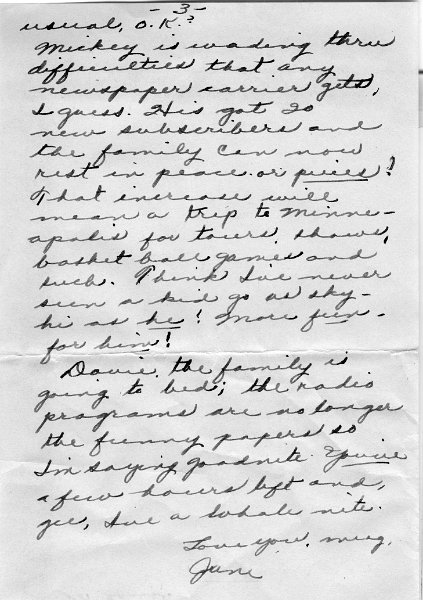 -3-
usual, O.K.?
Mickey is wading thru
difficulties that any
newspaper carrier gets,
I guess. His got 20
new subscribers and
the family can now
rest in peace or pieces!
That increase will
mean a trip to Minne-
apolis for tours, shows,
basket ball games and
such. Think I've never
seen a kid go as sky-
hi as he! More fun-
for him!
Davie, the family is
going to bed; the radio
programs are no longer
the funny papers so
I'm saying goodnite. You've
a few hours left and,
gee, I've a whole nite.
Love you, mug.
June